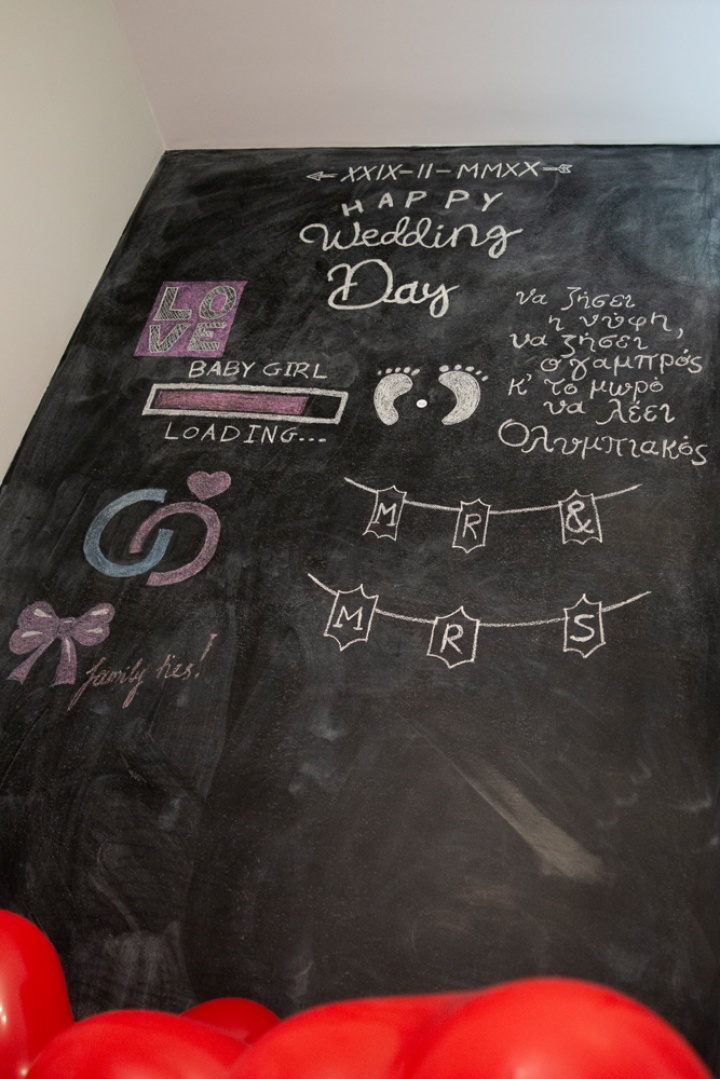 XXIX-II-MMXX
HAPPY
Wedding
Day
LO
VE
BABY GIRL
LOADING...
να ζήσει
η νύφη,
να ζήσει
ο γαμπρός
κ' το μωρό
να λέει
Ολυμπιακός
M R &
M R S
family ties!